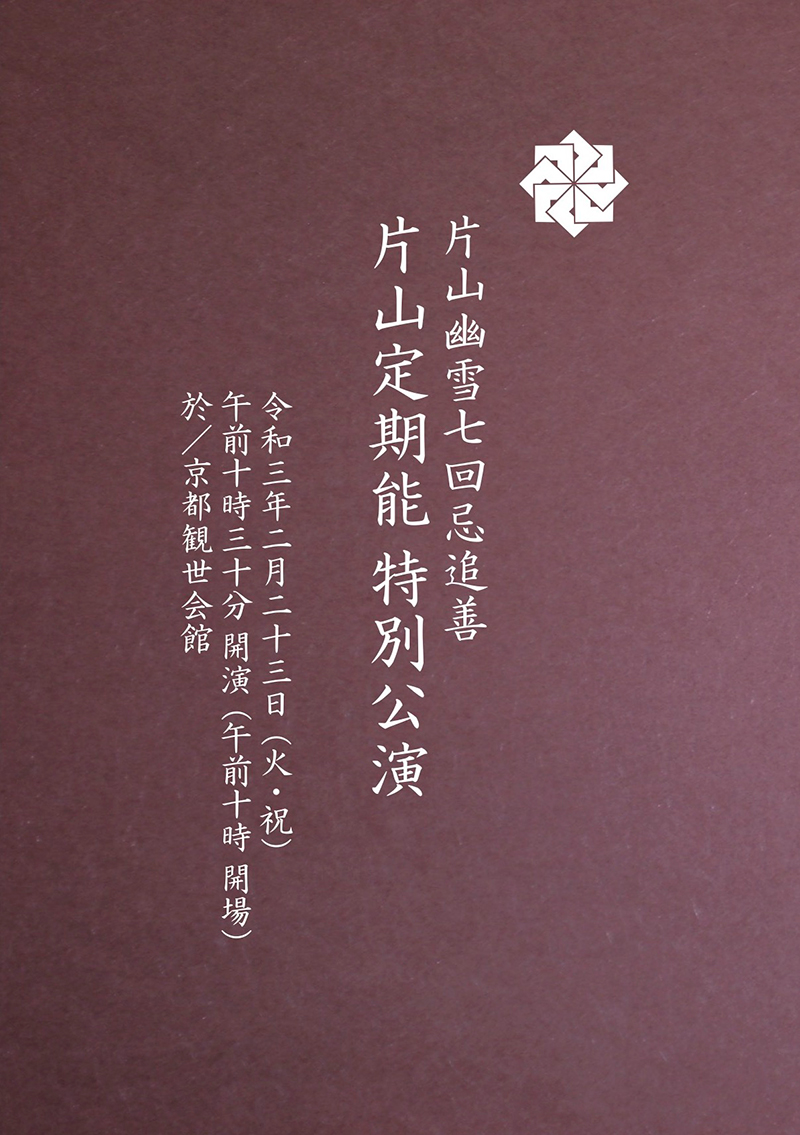 片山幽雪七回忌追善
片山定期能 特別公演
令和三年二月二十三日（火・祝）
午前十時三十分 開演（午前十時 開場）
於／京都観世会館